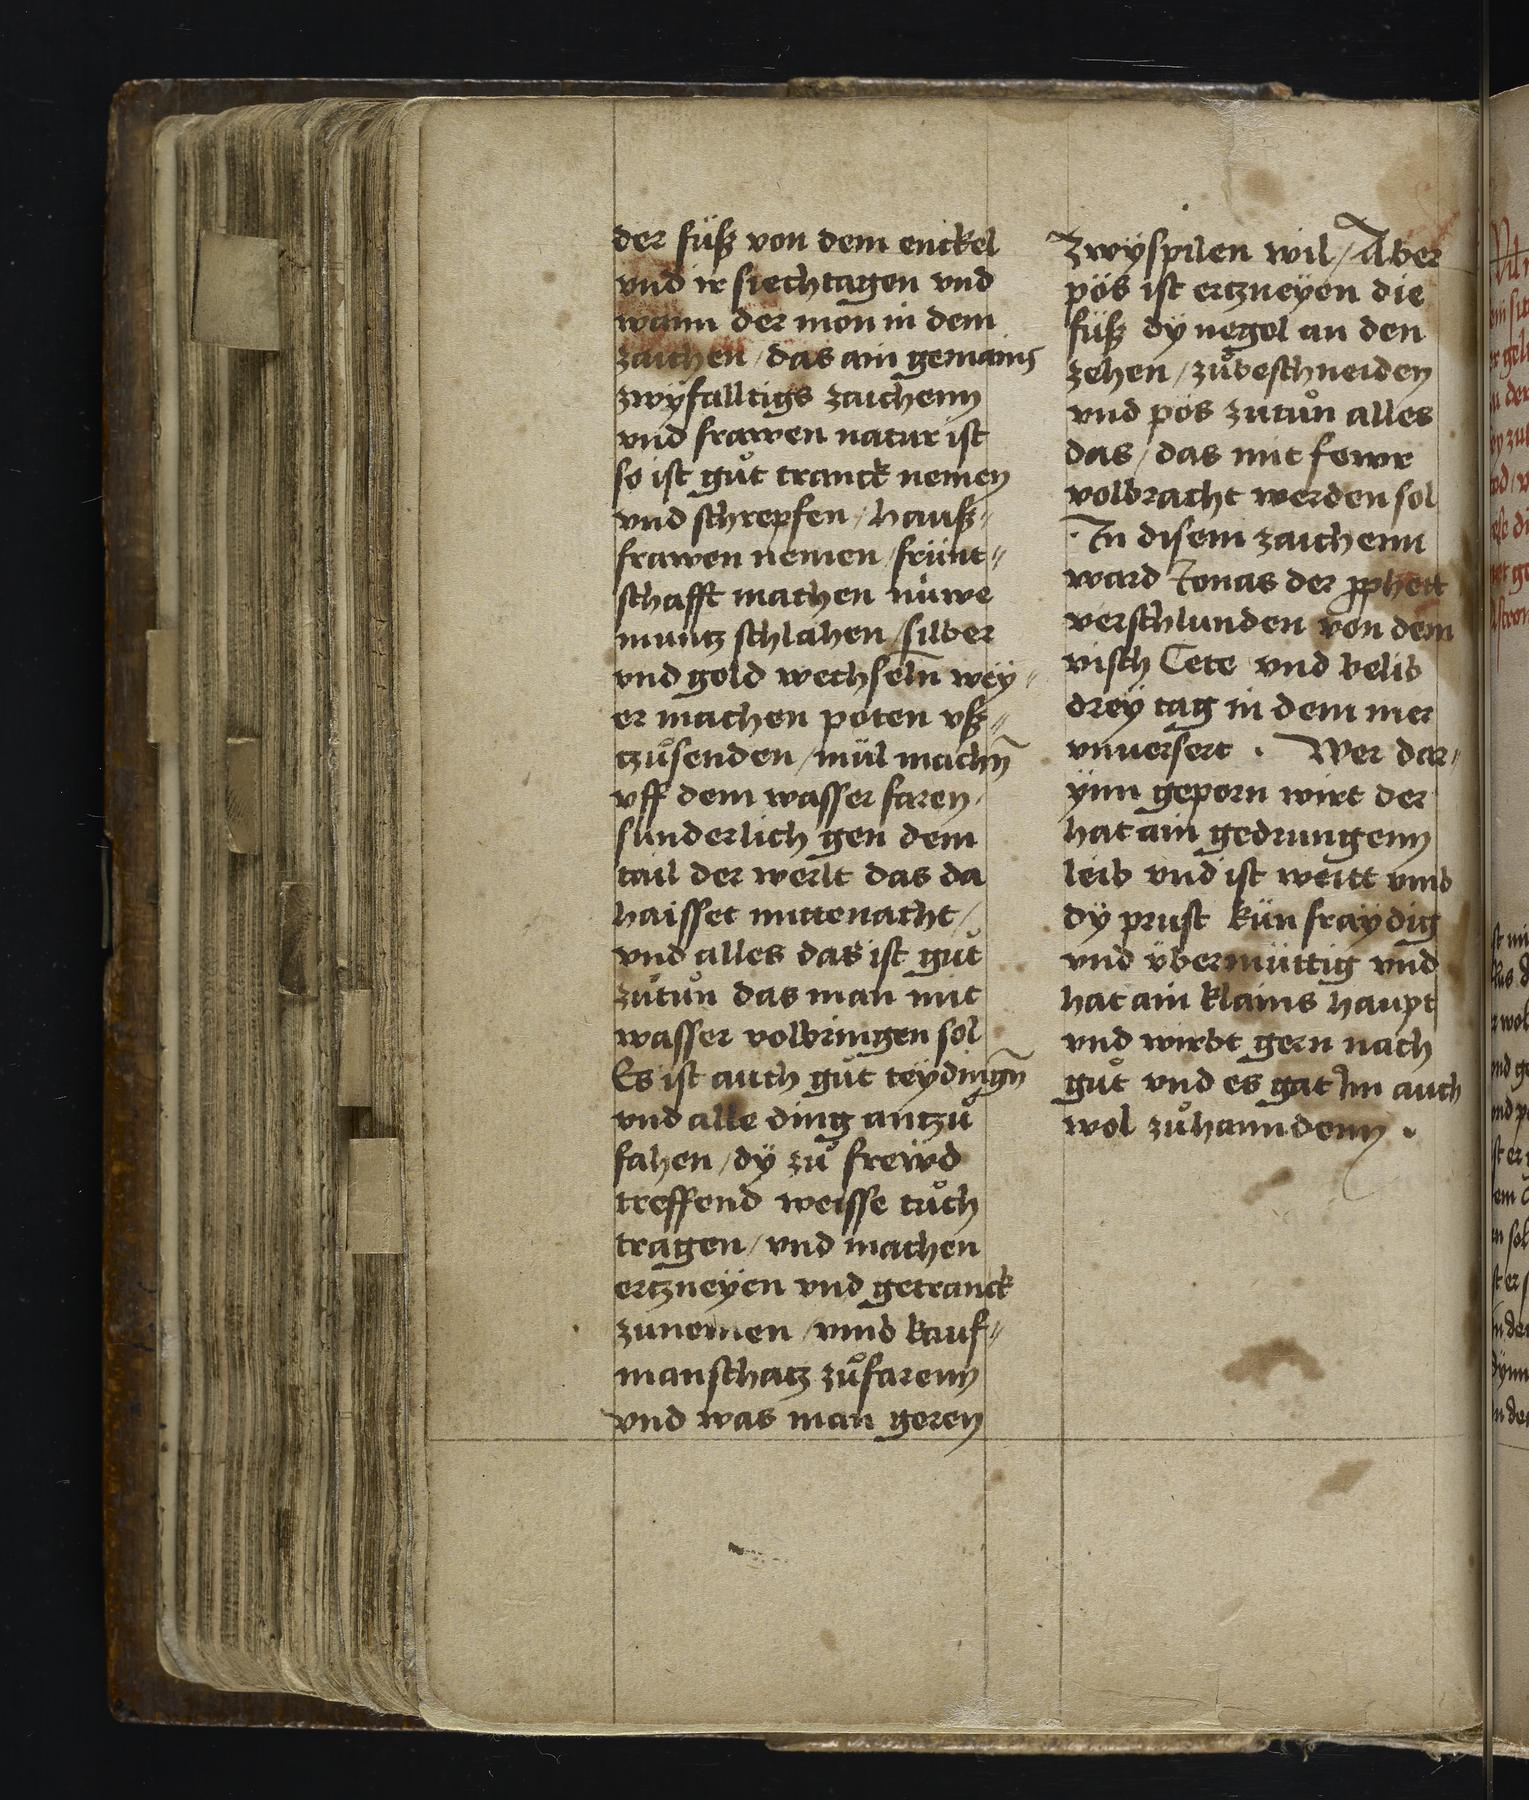 der füß von dem enckel
vnd ir siechtagen vnd
wann der mon in dem
zaichen / das ain gemains
zwyfalltigs zaichenn
vnd frawen natur ist
so ist gůt tranck nemen
vnd schrepfen / hauß⸗
frawen nemen / frünt⸗
schafft machen nüwe
müntz schlahen / silber
vnd gold wechseln wey⸗
er machen poten vß⸗
tzůsenden / mül machn̄
vff dem wasser faren /
sunderlich gen dem
tail der werlt das da
haisset mittenacht /
vnd alles das ist gůt
zůtůn das man mit
wasser volbringen sol
Es ist auch gůt teydingn̄
vnd alle ding antzů
fahen / dÿ zů frewd
treffend weisse tůch
tragen / vnd machen
ertzneÿen vnd getranck
zunemen / vmb kauf⸗
manschatz zůfarenn
vnd was man geren
zwÿspilen wil / Aber
pös ist ertzneÿen die
füß dÿ negel an den
zehen / zůbeschneiden
vnd pös zutůn alles
das / das mit fewr
volbracht werden sol
In disem zaichenn
ward Jonas der ꝓphett
verschlunden von dem
visch Cete vnd belib
dreÿ tag in dem mer
vnuersert . Wer dar⸗
ÿnn geporn wirt der
hat ain gedrungenn
leib vnd ist weitt vmb
dÿ prust kün fraÿdig
vnd übermüttig vnd
hat ain klains haupt
vnd wirbt gern nach
gůt vnd es gat Im auch
wol zůhanndenn .